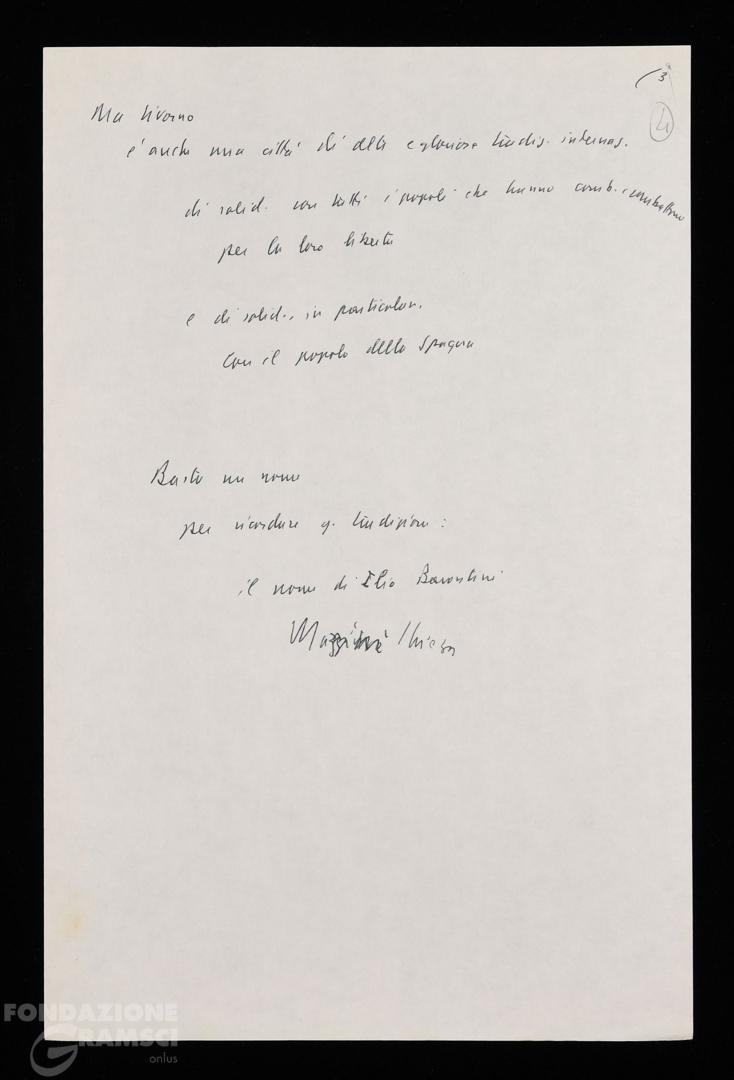 3
4
Ma Livorno
e' anche una città di alte e gloriose tradiz. internaz.
di solid. con tutti i popoli che hanno comb. e combattono
per la loro libertà
e di solid., in particolare,
con il popolo della Spagna
Basta un nome
per ricordare q. tradizione:
il nome di Ilio Barontini
FONDAZIONE
GRAMSCI
onlus